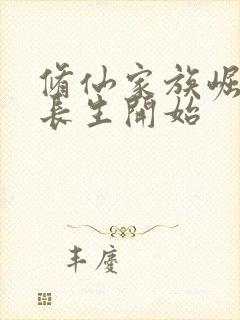 脩仙家族崛
長生開始
丰慶